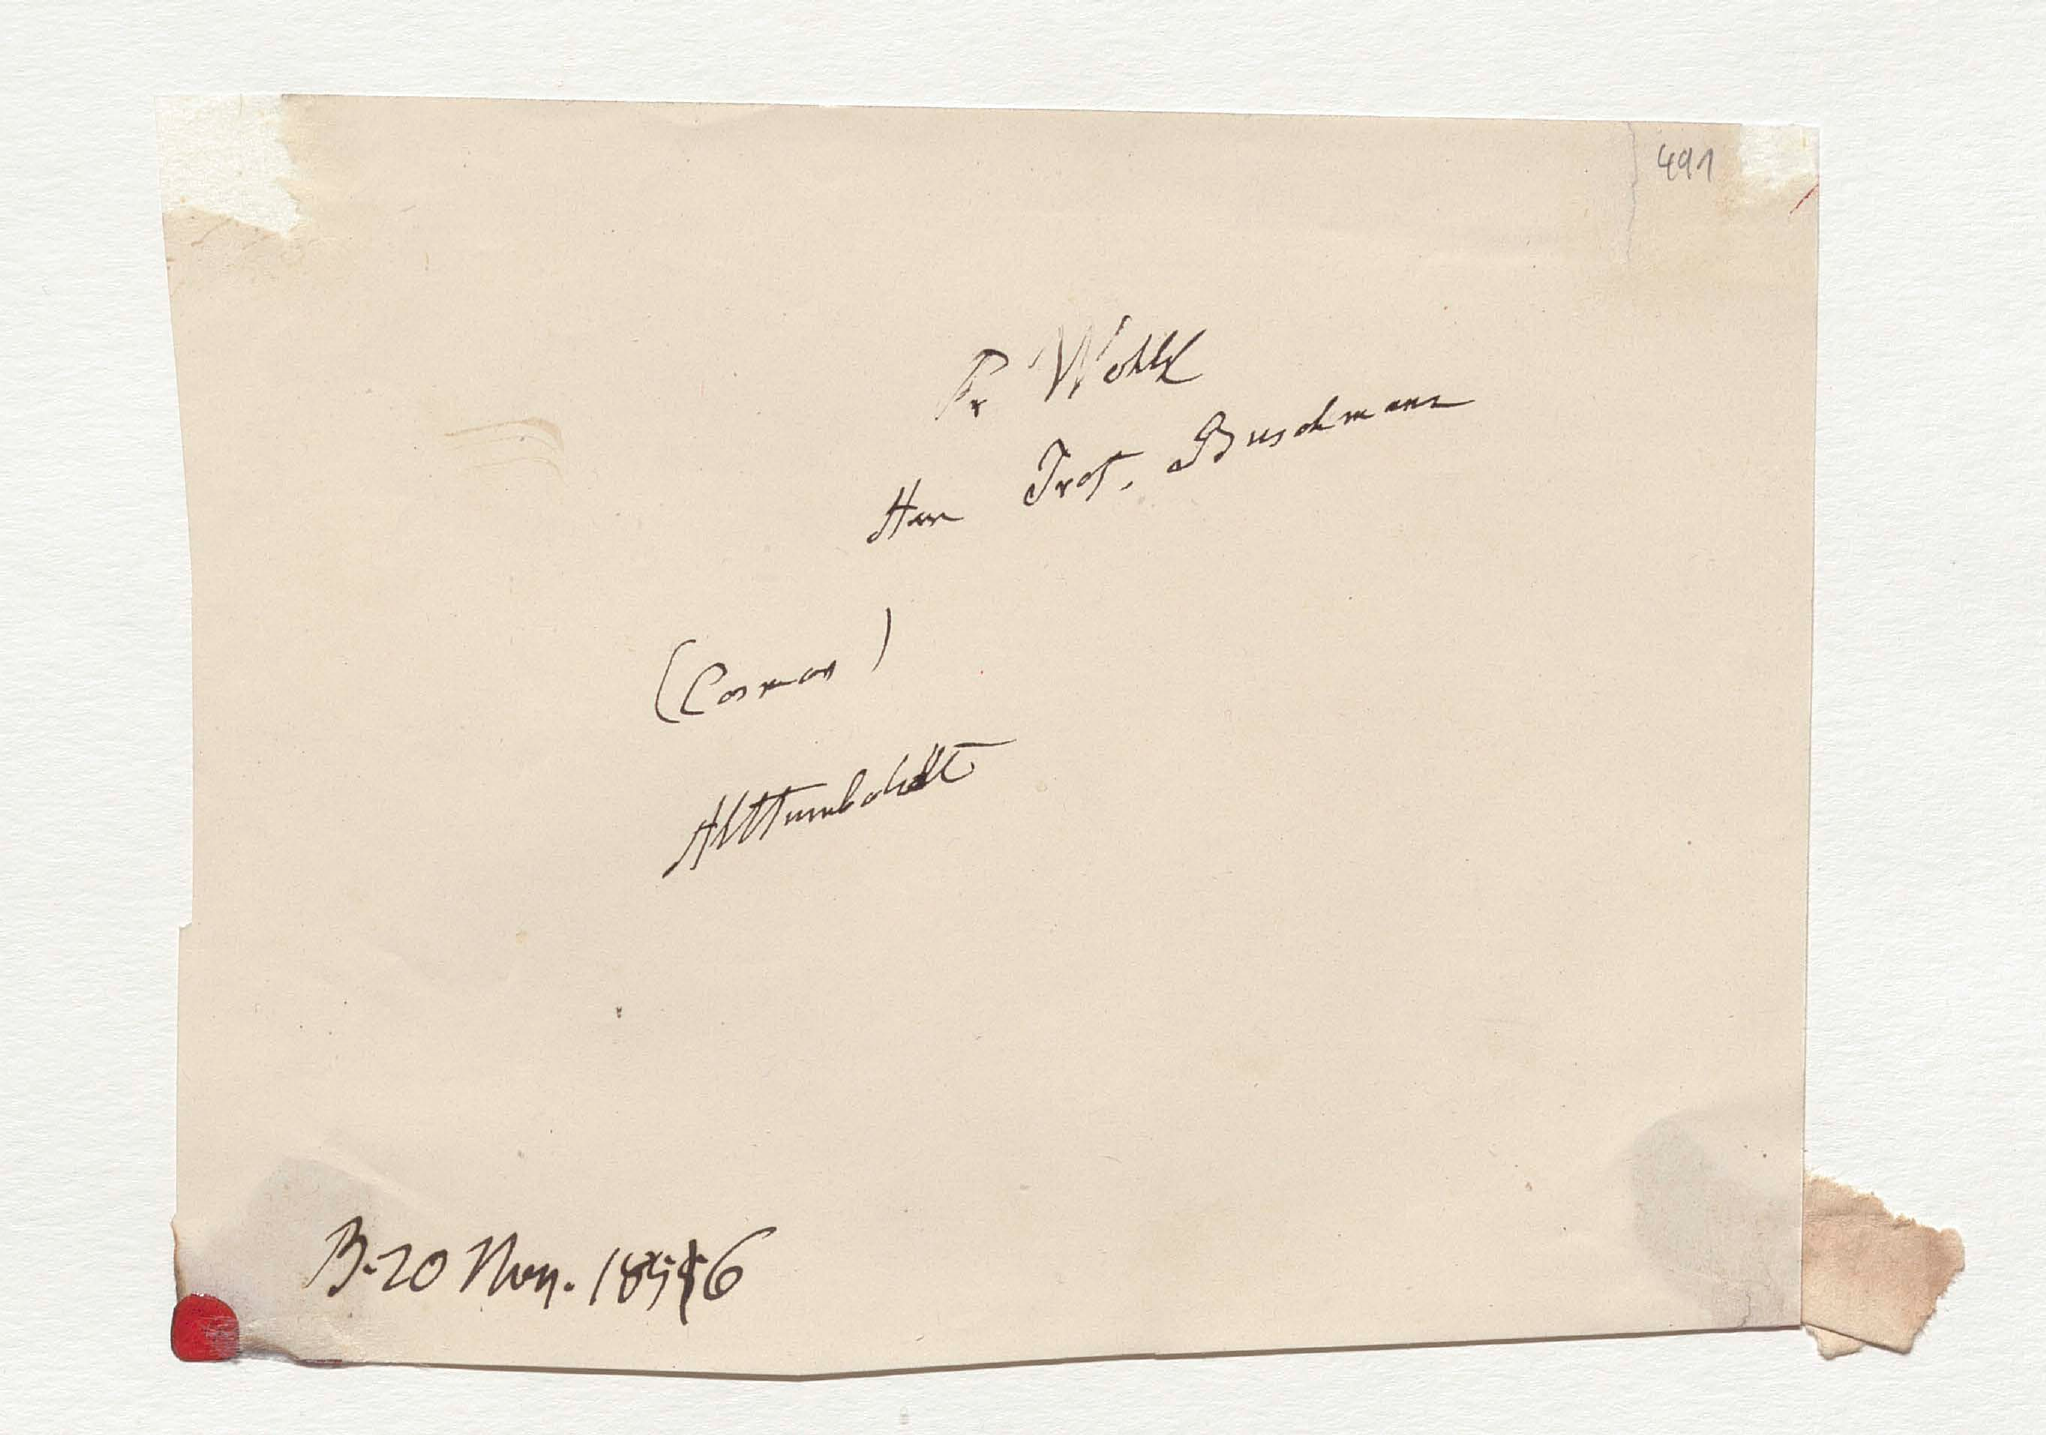 491
Sr Wohlg
Herrn Prof. Buschmann
(Cosmos)
AlHumboldt
B. 20 Nov. 1856